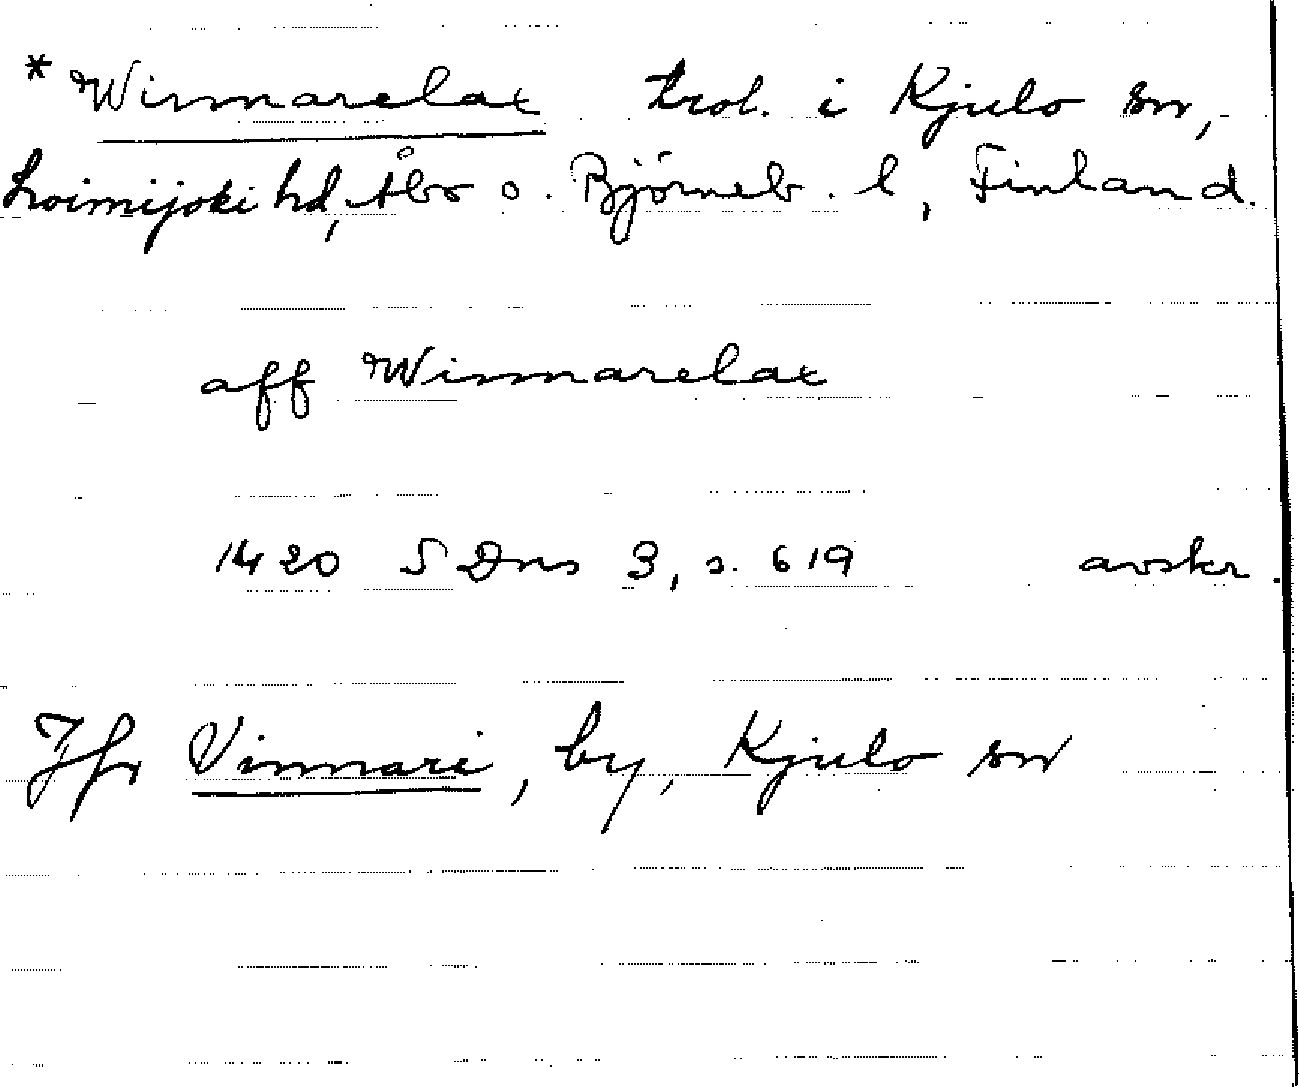 * Winnarelax trol. i Kjulo sn,
Loimijoki hd, Åbo o. Björneb. l, Finland.
aff Winnarelax
1420 SDns 3, s. 619 avskr.
Jfr Vinnari, by, Kjulo sn